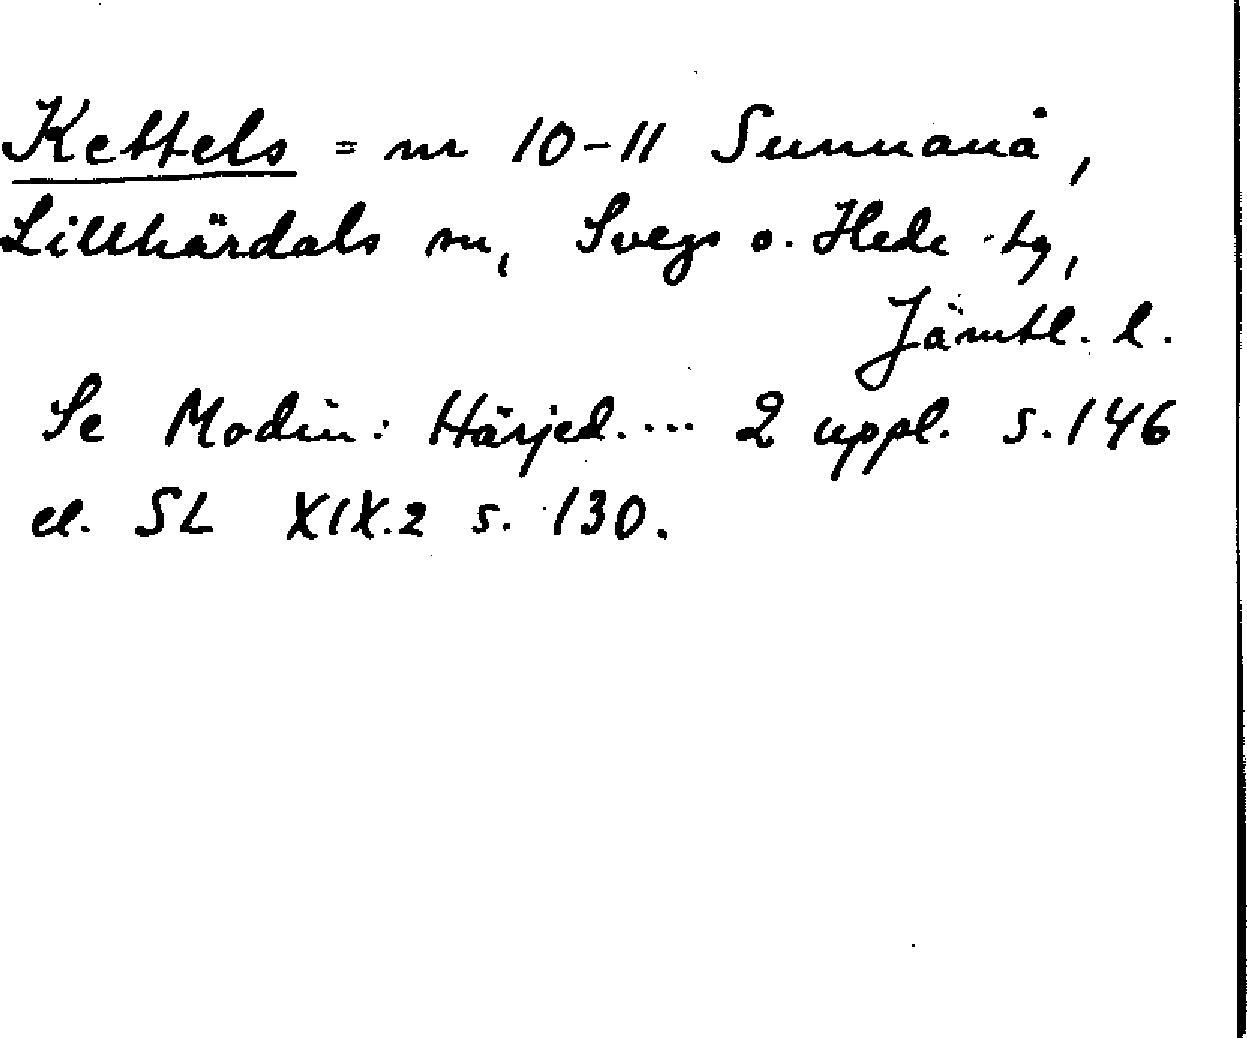 Kettels = nr 10-11 Sunnanå,
Lillhärdals sn, Svegs o. Hede tg,
Jämtl. l.
Se Modin: Härjed. ... 2 uppl. s. 146
el. SL XIX.2 s. 130.